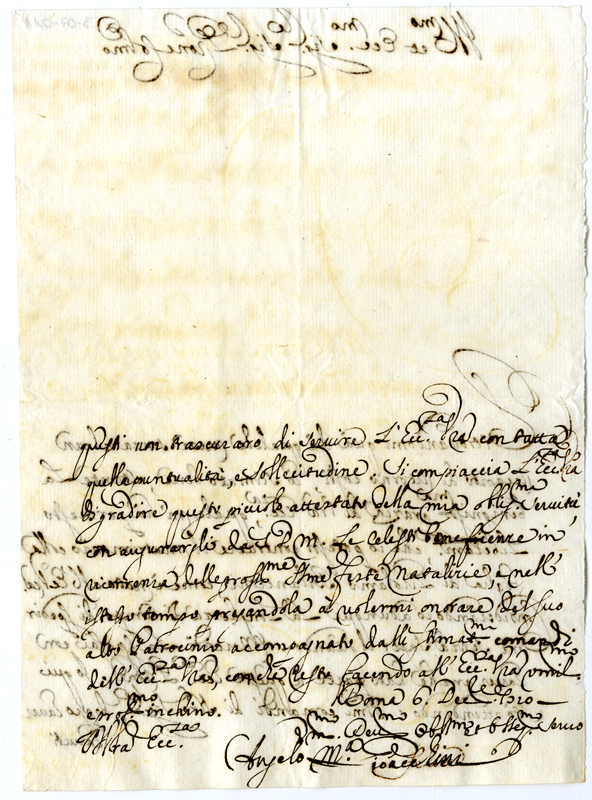 questi non trascurarò di servire L'Ecc.za V'ra con tutta
quella puntualità, e sollecitudine. Si compiaccia L'Ecc.za V'ra
di gradire questo picciolo attestato della mia oblig.ma servitù,
con augurargli da S. D. M. Le Celesti beneficenze in
vicorrenza delle pross.me S.me feste Natalizie, e nell'
istesso tempo pregandola à volermi onorare del suo
alto Patrocinio accompagnato dalli stimat.mi comandi
dell'Ecc.za V'ra, com'che resto facendo all'Ecc.za V'ra umil.mo
e prof.mo inchino.
Roma 6. Dec.
Di V'ra Ecc.za
Dev.mo et Oblig.mo servo
Angelo M.a